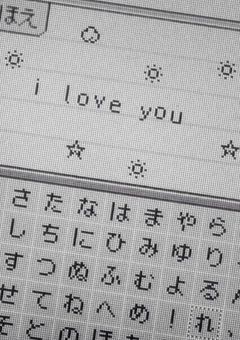 i love you
さ た な は ま や ら
し ち に ひ み ゆ り
す つ ぬ ふ む よ る
せ て ね へ め ! れ
と の